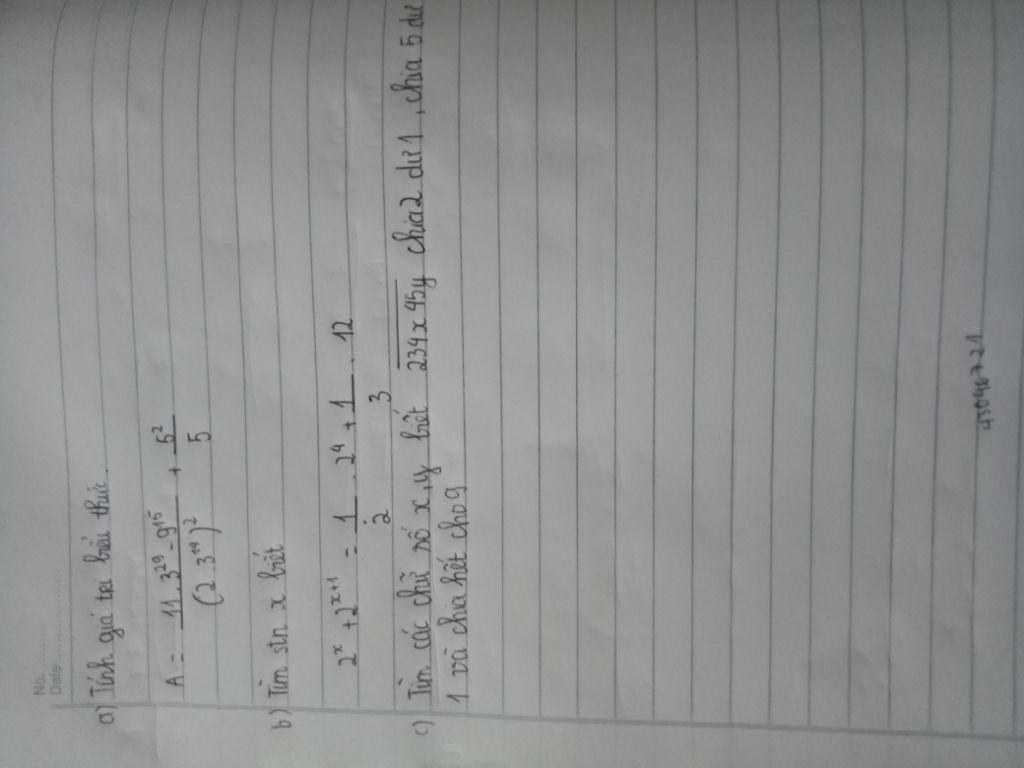 No. ............
Date ......................
a) Tính giá tại biểu thức.
A = 11.3²⁹ - 9¹⁵ / (2.3¹⁴)² + 5² / 5
b) Tìm stn x biết
2ˣ + 2ˣ⁺¹ = 1/2 . 2⁴ + 1/3 . 12
c) Tìm các chữ số x, y biết 234x45y chia 2 dư 1, chia 5 dư
1 và chia hết cho 9